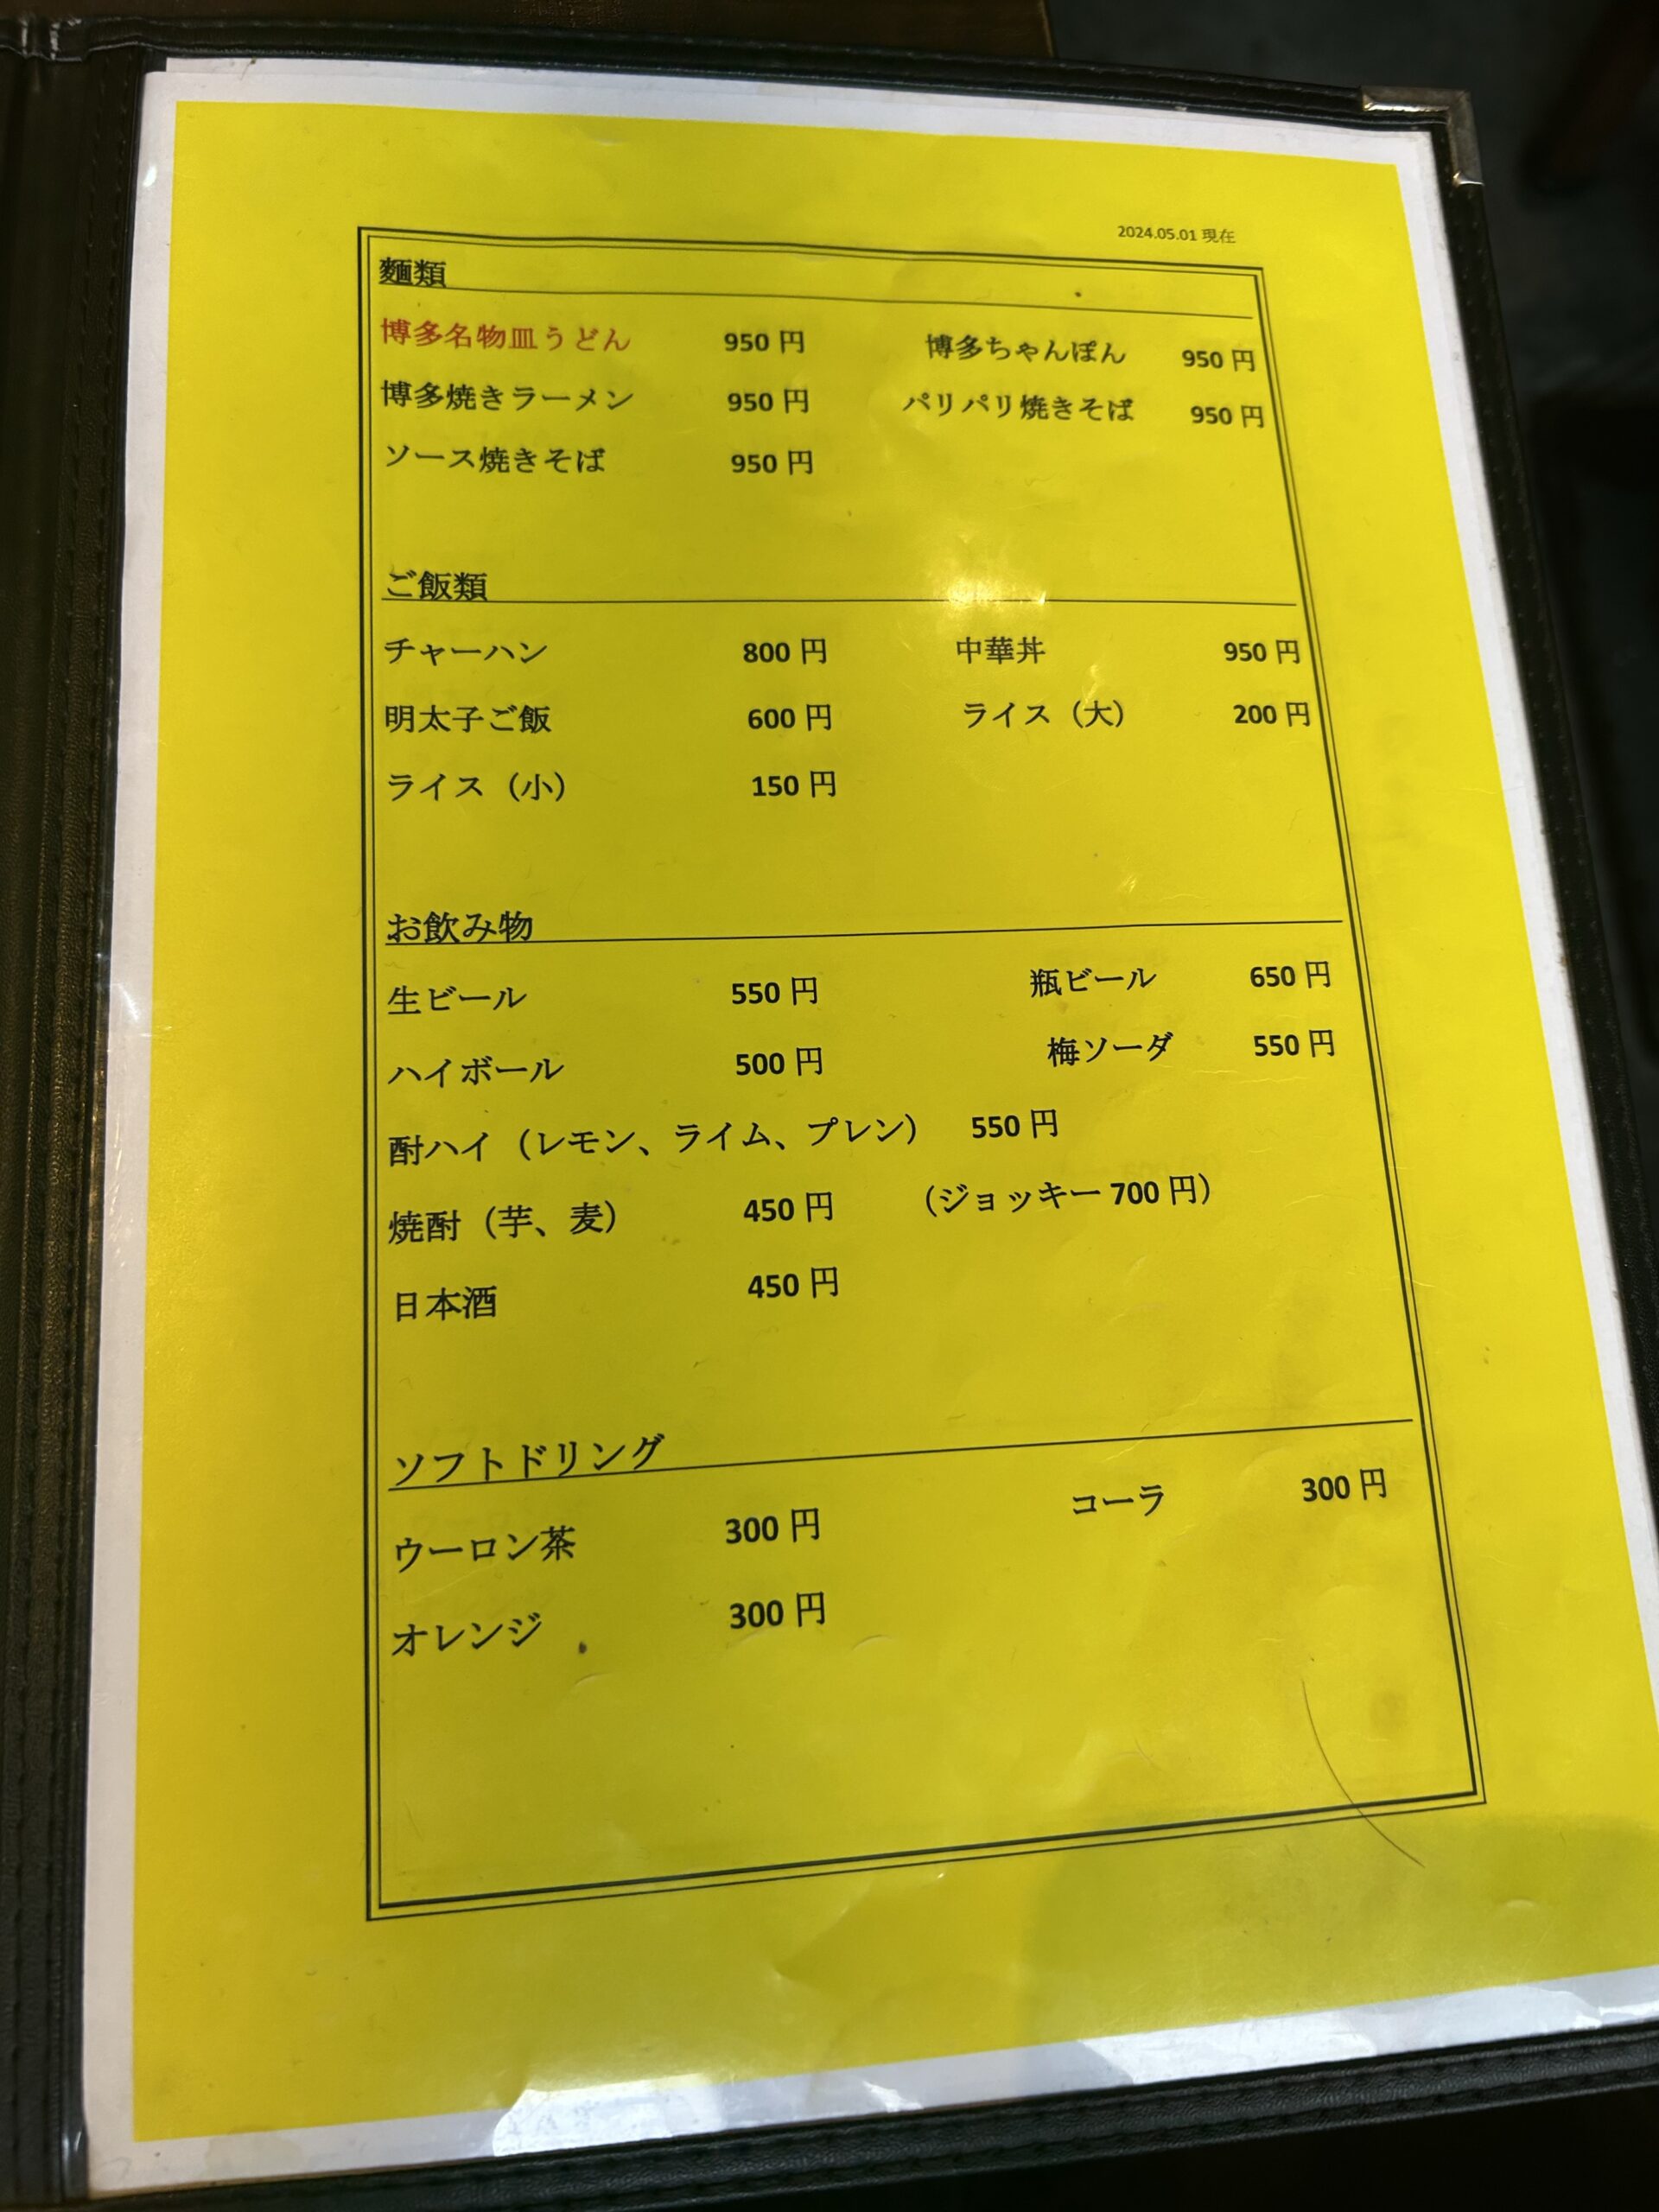 2024.05.01 現在
麵類
博多名物皿うどん 950 円 博多ちゃんぽん 950 円
博多焼きラーメン 950 円 パリパリ焼きそば 950 円
ソース焼きそば 950 円
ご飯類
チャーハン 800 円 中華丼 950 円
明太子ご飯 600 円 ライス（大） 200 円
ライス（小） 150 円
お飲み物
生ビール 550 円 瓶ビール 650 円
ハイボール 500 円 梅ソーダ 550 円
酎ハイ（レモン、ライム、プレン） 550 円
焼酎（芋、麦） 450 円 （ジョッキー 700 円）
日本酒 450 円
ソフトドリング
ウーロン茶 300 円 コーラ 300 円
オレンジ 300 円